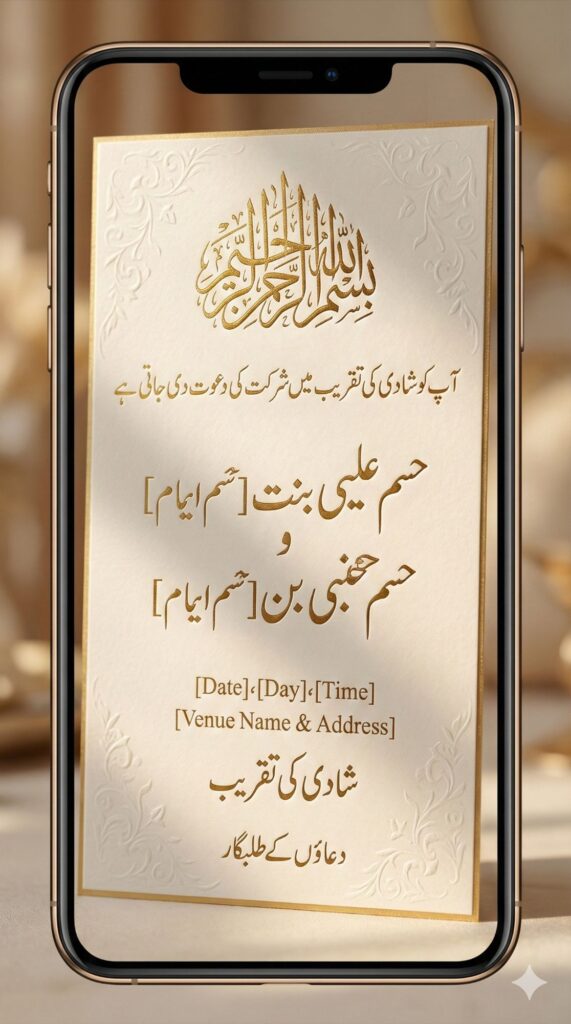 بسم الله الرحمن الرحيم
آپ کو شادی کی تقریب میں شرکت کی دعوت دی جاتی ہے
حسم علیی بنت [حسم ایمام]
و
حسم حجنبی بن [حسم ایمام]
[Date]،[Day]،[Time]
[Venue Name & Address]
شادی کی تقریب
دعاؤں کے طلبگار